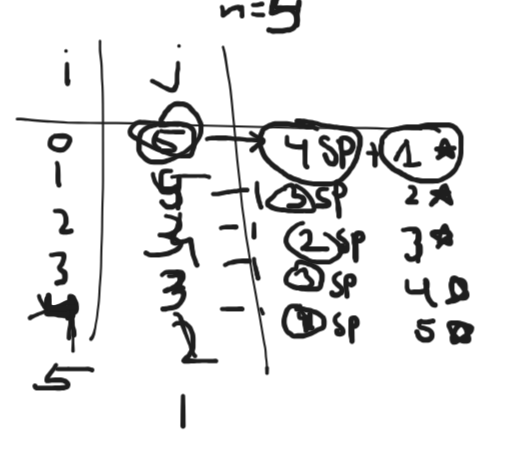 n=5
i j
0 5 → 4 SP + 1 ☆
1 5 - 1 3 SP 2 ☆
2 4 - 1 2 SP 3 ☆
3 3 - 1 SP 4
2 - SP 5
5
1